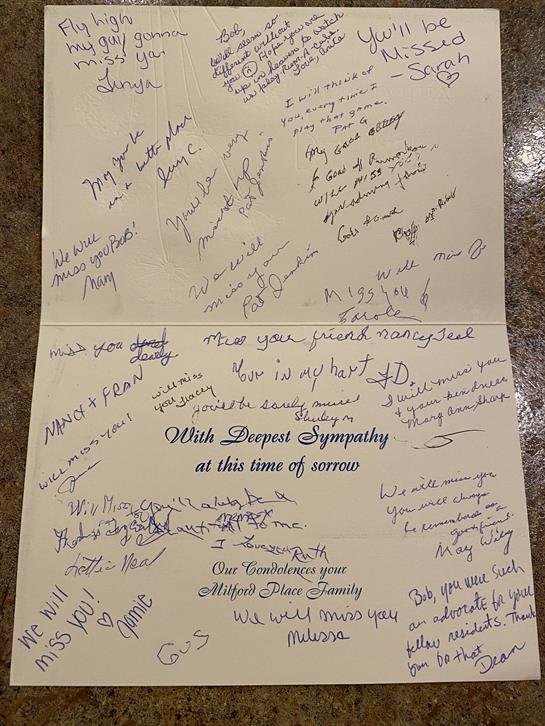 Fly high
my guy gonna
miss ya.
Bob,
will seem so
different without
you Hope you are
up in heaven to watch
us play Rum-A-cube
Love, Anita
You'll be
Missed
- Sarah
I will think of
you, every time I
play that game.
Pat G
May you be
in a better place
C.
You'll be very
missed
Pat
My Good
will miss
We will
miss you Bob!
Nancy
We will
miss you
Pat
Will miss
Miss you
Carole
miss you
dearly
Miss you friend Nancy Teal
Your in my hart
Nancy + Fran
will miss
you Tracey
You'll be sorely missed
Shirley M
I will miss you
& your kindness
Mary Ann Sharp
will miss you!
With Deepest Sympathy
at this time of sorrow
Will Miss
You'll always be a
beautiful memory to me.
I love you Ruth
Lottie Neal
We will miss you
you will always
be remembered as a
good friend.
May Wiley
Our Condolences your
Milford Place Family
We will
miss you!
Jamie
Gus
We will miss you
Milissa
Bob, you were such
an advocate for your
fellow residents. Thank
you for that
Dean